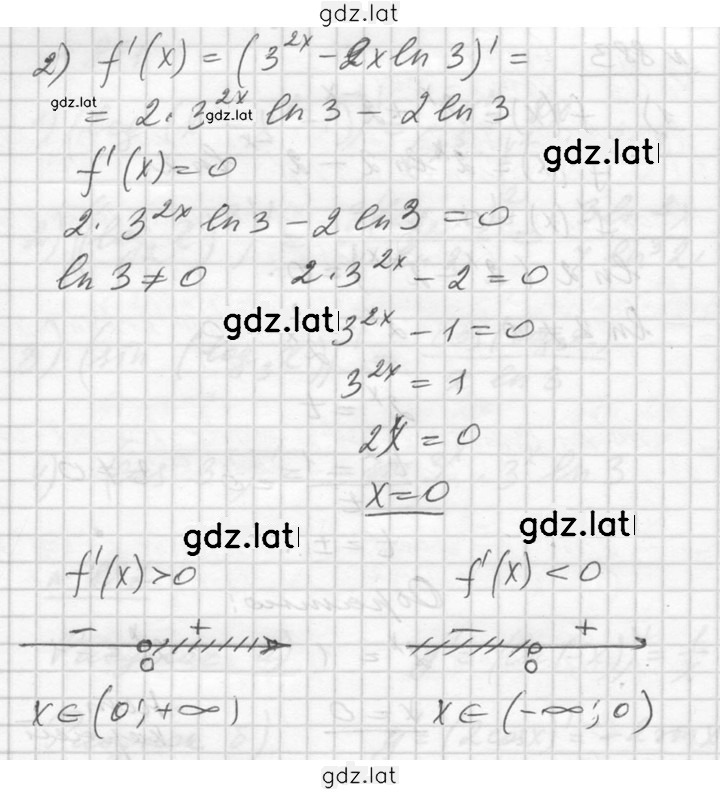 gdz.lat
2) f'(x) = (3^{2x} - 2x ln 3)' =
gdz.lat
= 2 · 3^{2x} ln 3 - 2 ln 3
gdz.lat
gdz.lat
f'(x) = 0
2 · 3^{2x} ln 3 - 2 ln 3 = 0
ln 3 ≠ 0 2 · 3^{2x} - 2 = 0
gdz.lat 3^{2x} - 1 = 0
3^{2x} = 1
2x = 0
x = 0
gdz.lat gdz.lat
f'(x) > 0 f'(x) < 0
- + - +
0 0
x ∈ (0; +∞) x ∈ (-∞; 0)
gdz.lat